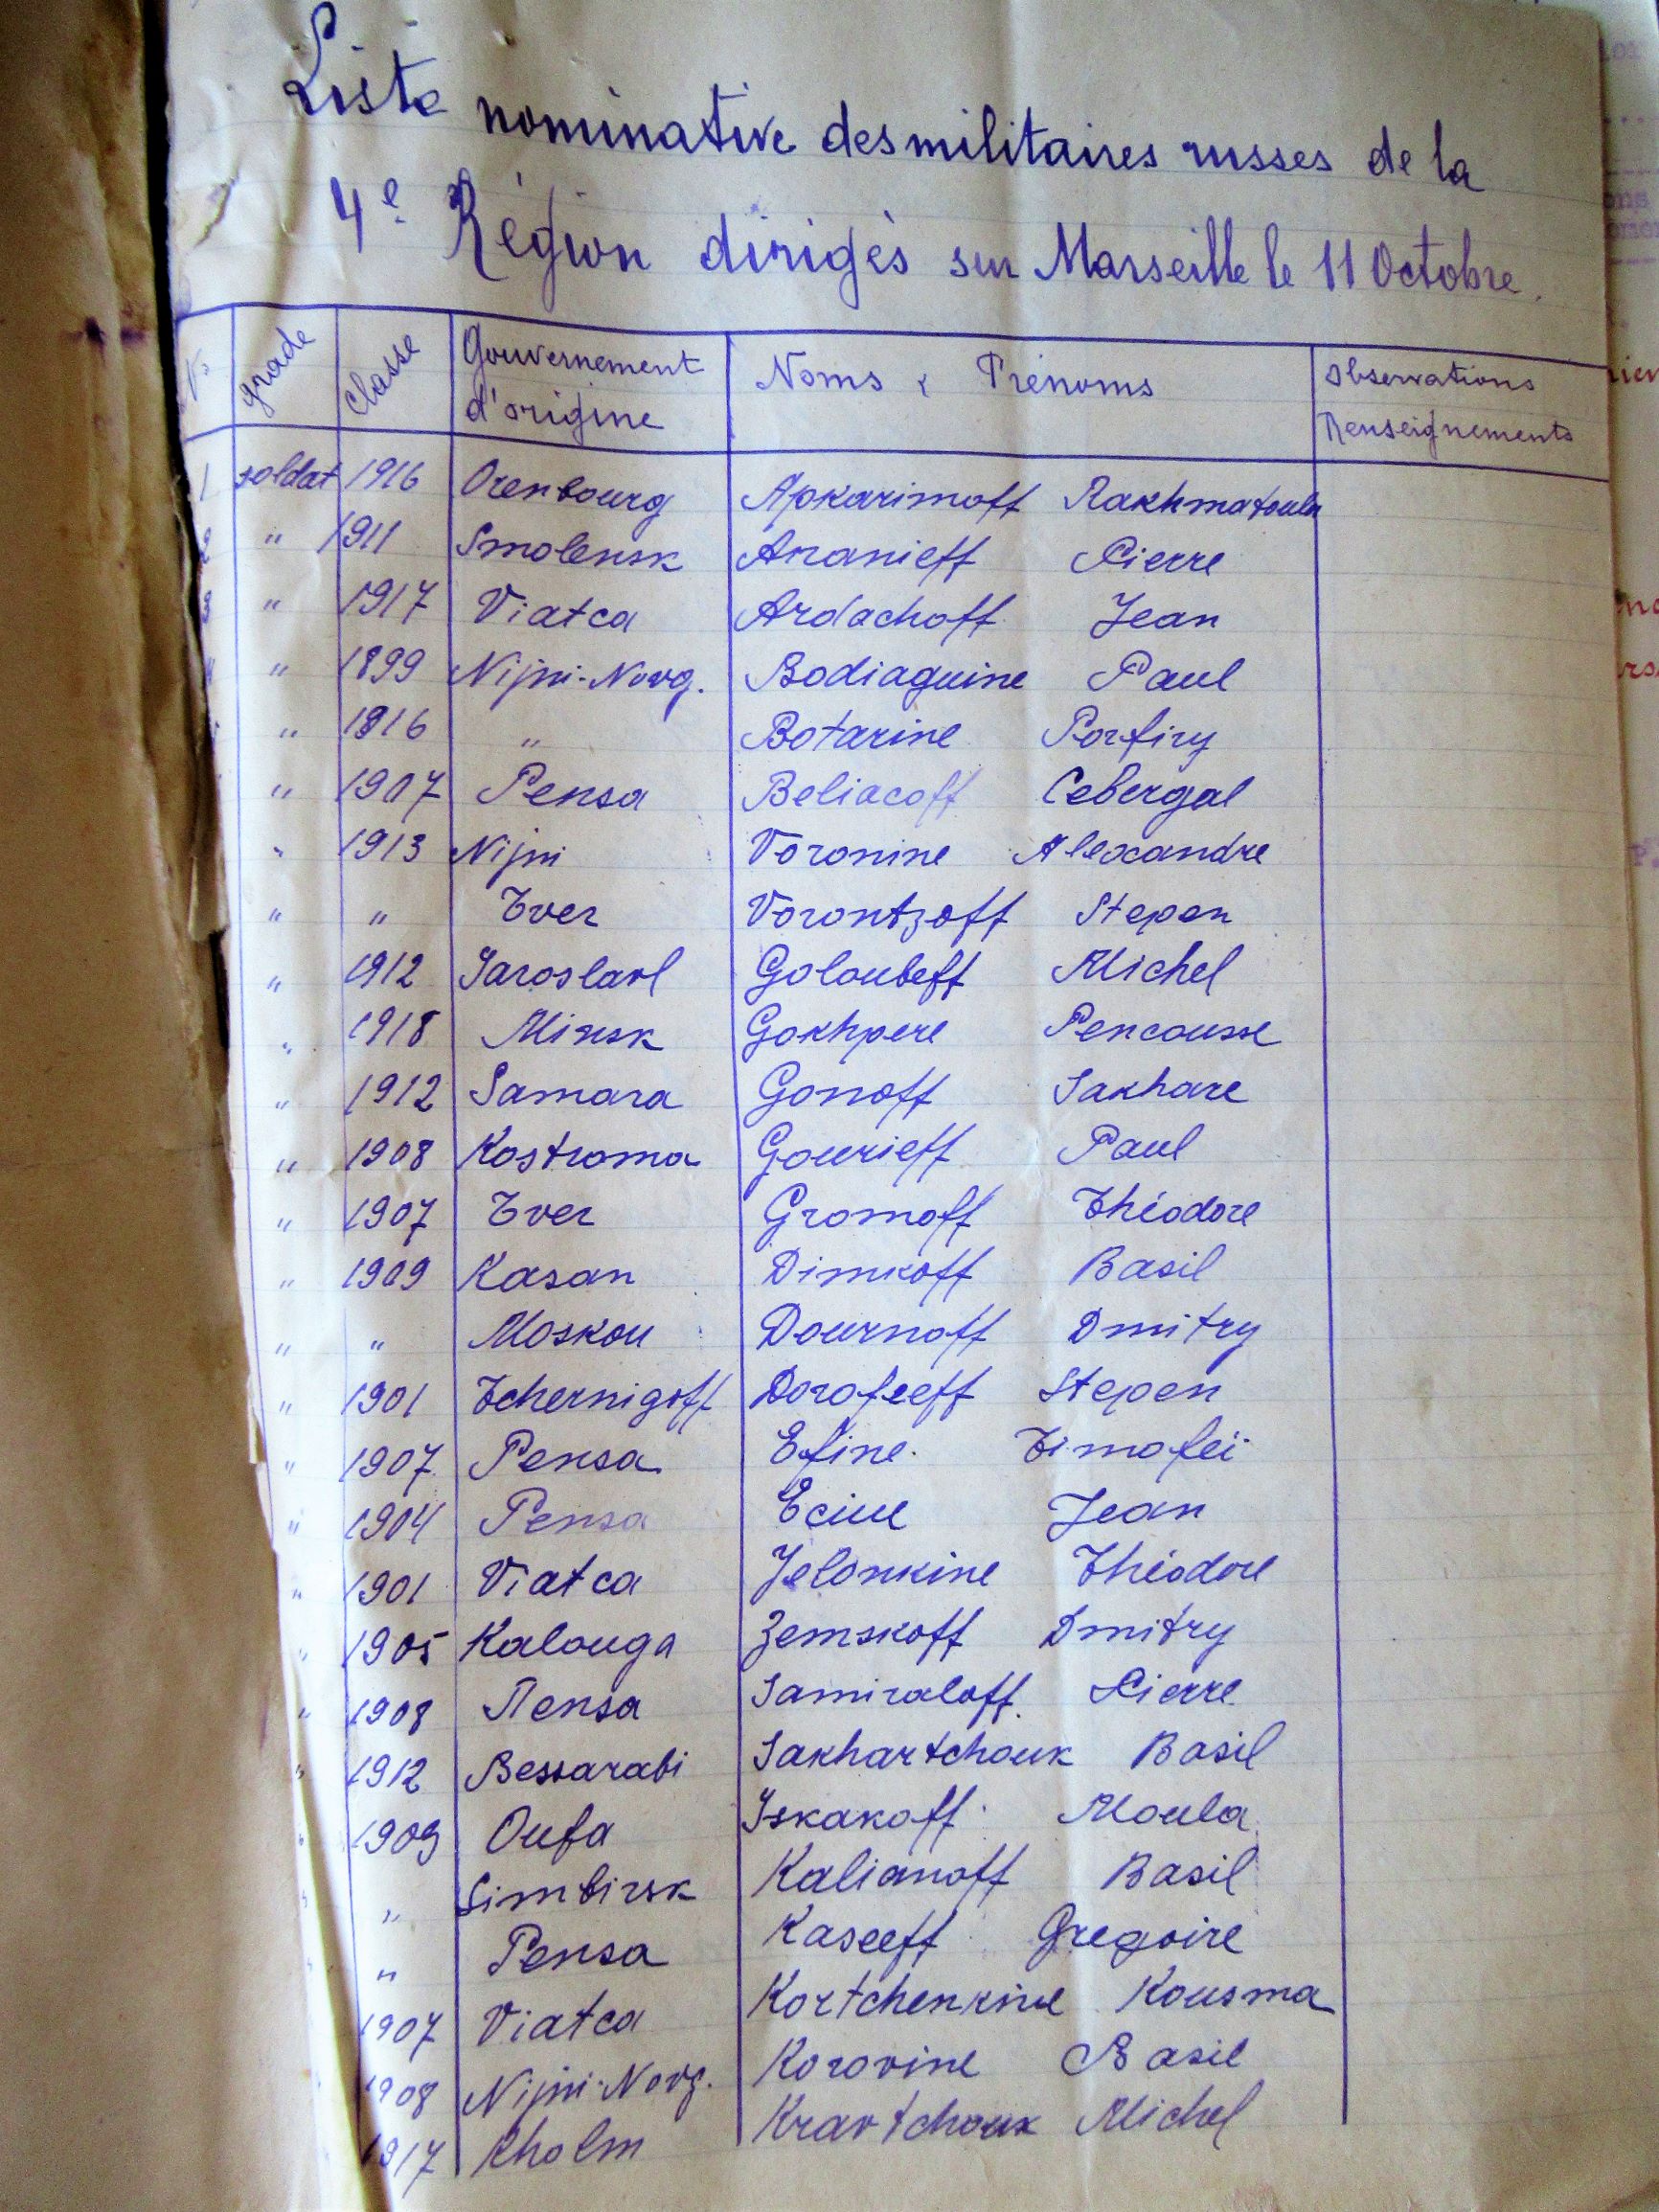 Liste nominative des militaires russes de la
4e Région dirigés sur Marseille le 11 Octobre.
No grade Classe Gouvernement d'origine Noms & Prénoms Observations Renseignements
1 soldat 1916 Orenbourg Apkarimoff Rakhmatoula
2 " 1911 Smolensk Ananieff Pierre
3 " 1917 Viatca Ardachoff Jean
" 1899 Nijni-Novg. Bodiaguine Paul
" 1916 " Botarine Porfiry
" 1907 Pensa Beliacoff Cebergal
" 1913 Nijni Voronine Alexandre
" " Tver Vorontzoff Stepen
" 1912 Jaroslavl Goloubeff Michel
" 1918 Minsk Gokhpere Pencousse
" 1912 Samara Gonoff Sakhare
" 1908 Kostroma Gourieff Paul
" 1907 Tver Gromoff Théodore
" 1909 Kasan Dimkoff Basil
" " Moskou Dournoff Dmitry
" 1901 Tchernigoff Dorofeeff Stepen
" 1907 Pensa Efine Timofeï
" 1904 Pensa Jean
" 1901 Viatca Jelonkine Théodore
" 1905 Kalouga Zemskoff Dmitry
" 1908 Пensa Samiraloff Pierre
" 1912 Bessarabi Sakhartchouk Basil
" 1909 Oufa Iskakoff Moula
" " Simbirsk Kalianoff Basil
" " Pensa Kaseeff Gregoire
1907 Viatca Kortchenkine Kousma
1908 Nijni-Novg. Korovine Basil
1917 Kholm Kravtchouk Michel